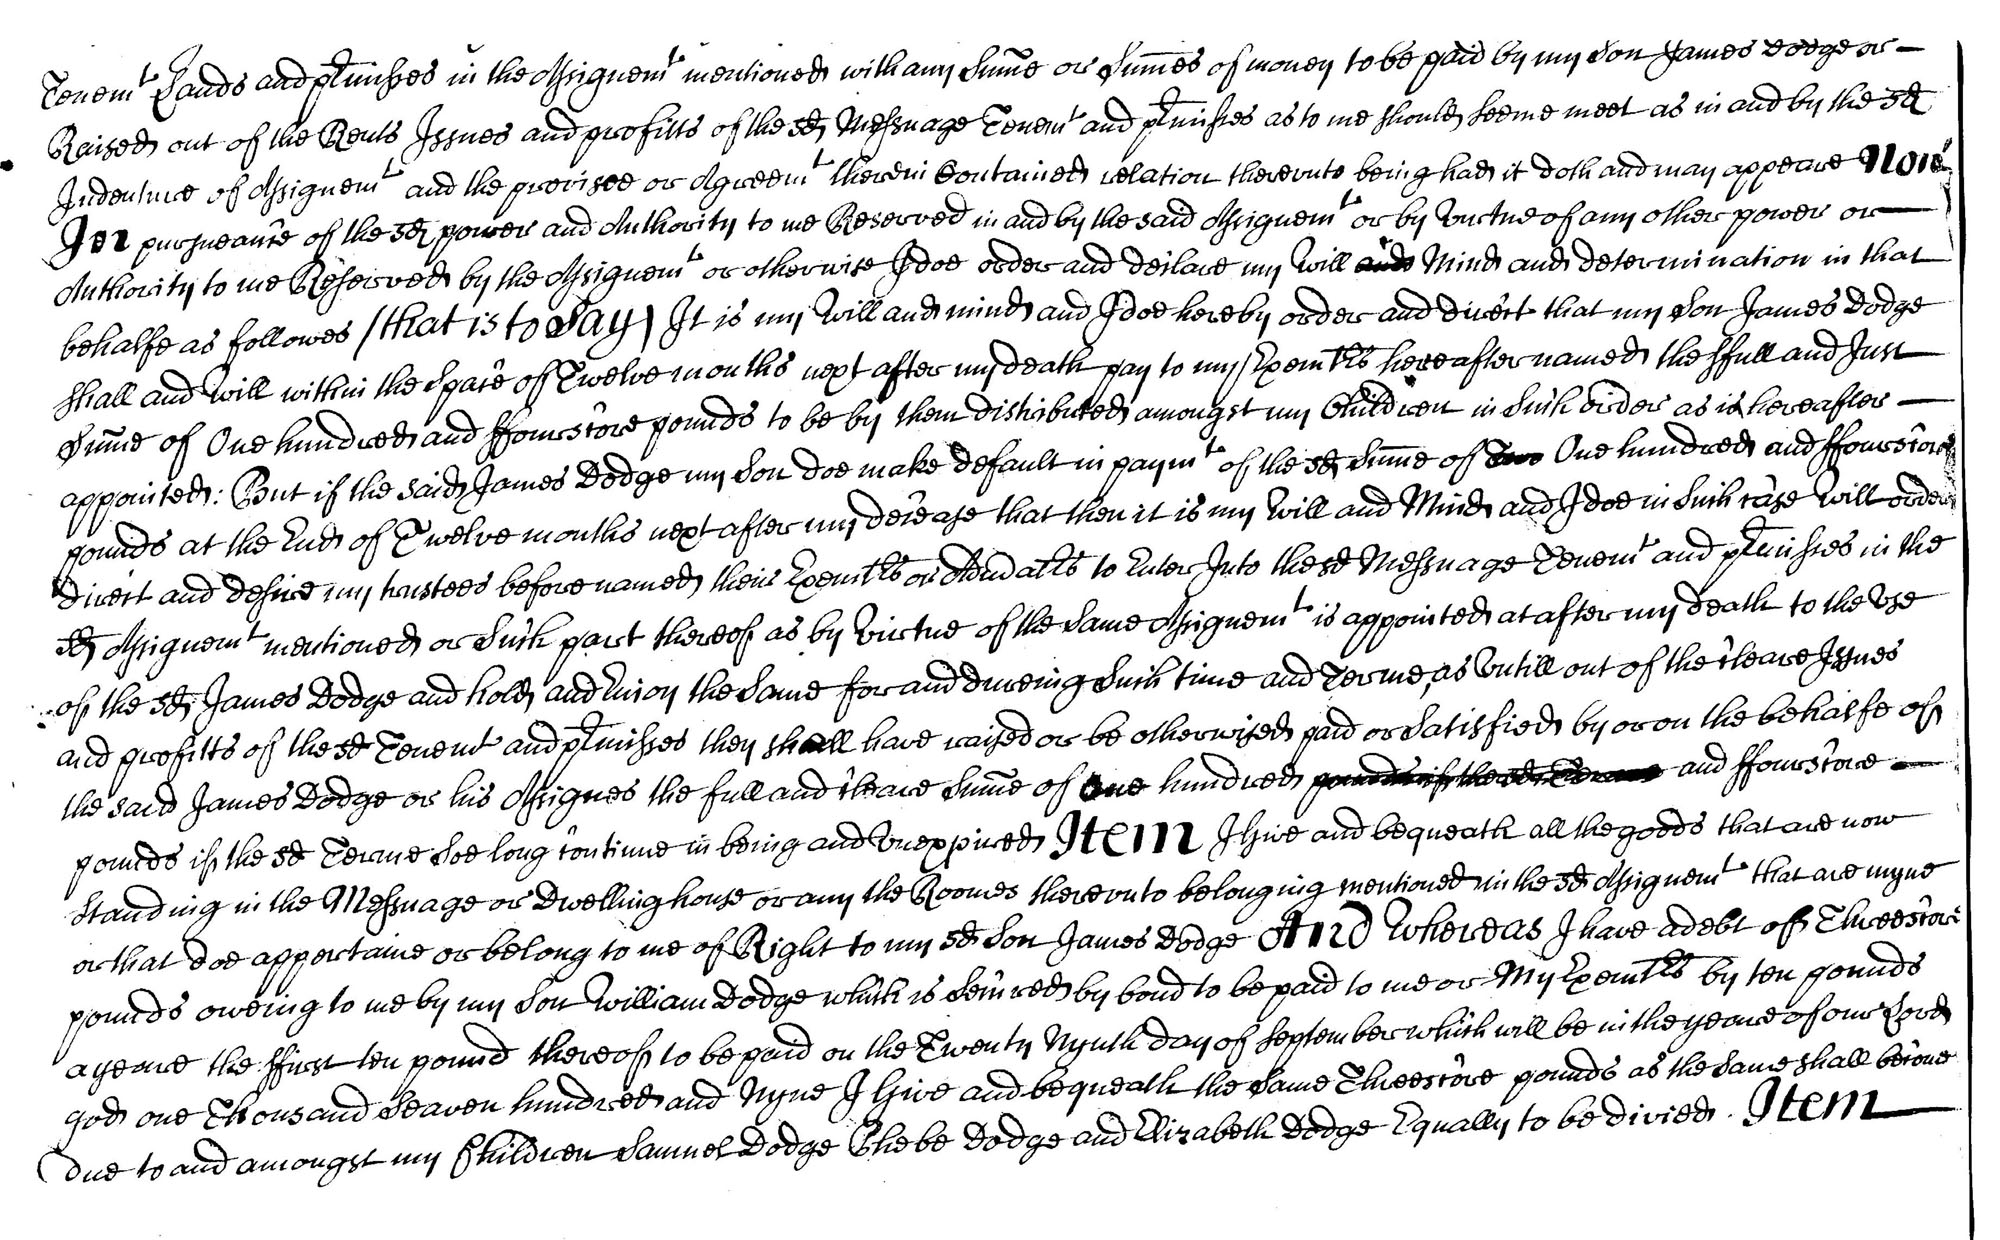 Tenemt Lands and p'misses in the Assignemt mentioned with any Sume or Sumes of money to be paid by my Son James Dodge or
Raised out of the Rents Issues and profitts of the sd Messuage Tenemt and p'misses as to me should seeme meet as in and by the sd
Indenture of Assignemt and the provisoe or Agreemt therein Contained relation thereunto being had it doth and may appeare Now
I in pursueance of the sd power and Authority to me Reserved in and by the said Assignemt or by Virtue of any other power or
Authority to me Reserved by the Assignemt or otherwise I doe order and declare my Will and Mind and determination in that
behalfe as followes (that is to Say) It is my Will and mind and I doe hereby order and direct that my Son James Dodge
shall and Will within the Space of Twelve months next after my death pay to my Execut'rs hereafter named the ffull and Just
Sume of One hundred and ffourscore pounds to be by them distributed amongst my Children in Such order as is hereafter
appointed: But if the said James Dodge my Son doe make default in paymt of the sd Sume of Two One hundred and ffourscore
pounds at the End of Twelve months next after my decease that then it is my Will and Mind and I doe in Such case Will order
direct and desire my trustees before named their Execut'rs or Adm'at'rs to Enter Into the sd Messuage Tenemt and p'misses in the
sd Assignemt mentioned or Such part thereof as by Virtue of the Same Assignemt is appointed at after my death to the Use
of the sd James Dodge and hold and Enjoy the Same for and dureing Such time and Terme, as Untill out of the cleare Issues
and profitts of the sd Tenemt and p'misses they shall have raised or be otherwised paid or Satisfied by or on the behalfe of
the said James Dodge or his Assignes the full and cleare Sume of One hundred pounds if the sd Terme and ffourscore
pounds if the sd Terme Soe long continue in being and Unexpired Item I Give and bequeath all the goods that are now
standing in the Messuage or Dwelling house or any the Roomes thereunto belonging mentioned in the sd Assignemt that are myne
or that doe appertaine or belong to me of Right to my sd Son James Dodge And Whereas I have a debt of Threescore
pounds oweing to me by my Son William Dodge which is Secured by bond to be paid to me or My Execut'rs by ten pounds
a yeare the ffirst ten pound thereof to be paid on the Twenty Nynth day of September which will be in the yeare of our Lord
god one Thousand Seaven hundred and Nyne I Give and bequeath the Same Threescore pounds as the Same shall become
due to and amongst my Children Samuel Dodge Phebe Dodge and Elizabeth Dodge Equally to be divied. Item